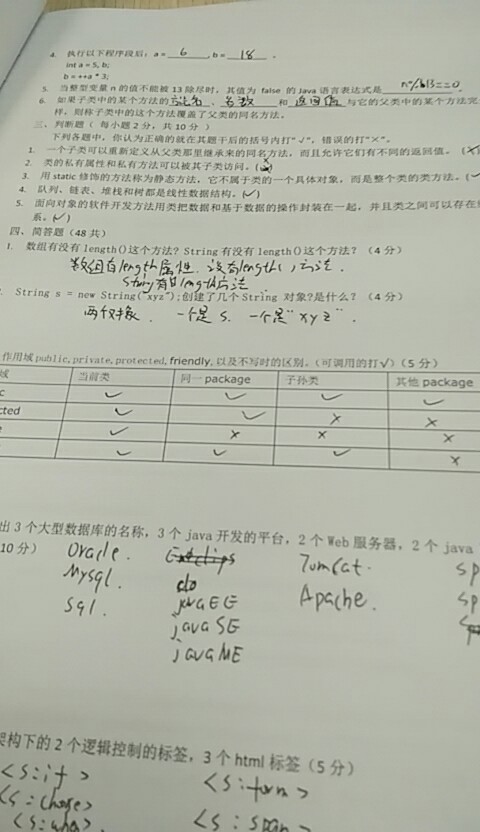 4. 执行以下程序段后：a = 6 ，b = 18 。
int a = 5, b;
b = ++a * 3;
5. 当整型变量 n 的值不能被 13 除尽时，其值为 false 的 Java 语言表达式是 n%13==0
6. 如果子类中的某个方法的 名、参数 和 返回值 与它的父类中的某个方法完
样，则称子类中的这个方法覆盖了父类的同名方法。
三、判断题（ 每小题 2 分，共 10 分 ）
下列各题中，你认为正确的就在其题干后的括号内打"√"，错误的打"×"。
1. 一个子类可以重新定义从父类那里继承来的同名方法，而且允许它们有不同的返回值。（×
2. 类的私有属性和私有方法可以被其子类访问。（
3. 用 static 修饰的方法称为静态方法，它不属于类的一个具体对象，而是整个类的类方法。（✓
4. 队列、链表、堆栈和树都是线性数据结构。（✓）
5. 面向对象的软件开发方法用类把数据和基于数据的操作封装在一起，并且类之间可以存在
系。（✓）
四、简答题（48 共）
1. 数组有没有 length()这个方法? String 有没有 length()这个方法? （4 分）
数组有length属性，没有length()方法.
String有length方法
. String s = new String("xyz");创建了几个 String 对象?是什么? （4 分）
两个对象. 一个是 s. 一个是"xyz".
作用域 public,private,protected,friendly,以及不写时的区别。（可调用的打√）（5 分）
域 当前类 同一 package 子孙类 其他 package
c ✓ ✓ ✓ ✓
cted ✓ ✓ × ×
e ✓ × × ×
✓ ✓ ✓ ×
出 3 个大型数据库的名称，3 个 java 开发的平台，2 个 Web 服务器，2 个 java
10 分）
Oracle. Tomcat. sp
Mysql. Apache. sp
Sql. javaEE
javaSE
javaME
架构下的 2 个逻辑控制的标签，3 个 html 标签（5 分）
<s:if> <s:form>
<s:choose> <s:span>
<s:when>